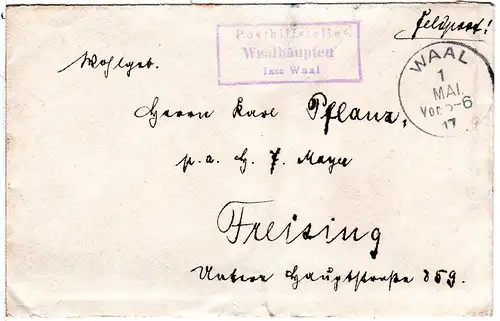 Feldpost!
Posthilfstelle
Waalhäupten
Taxe Waal
WAAL
1
MAI.
Vor. 5-6
17
Wohlgeb.
Herrn Karl Pflanz,
p. a. H. F. Mayer
Freising
Untere Hauptstraße 859.